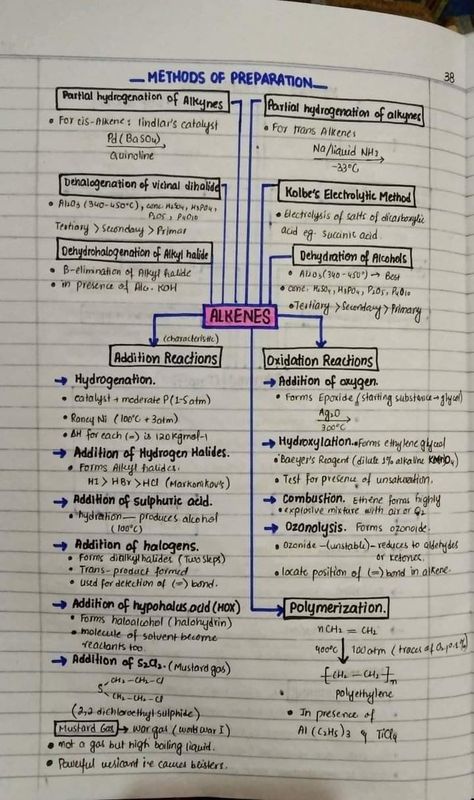 METHODS OF PREPARATION
38
Partial hydrogenation of Alkynes
• For cis-Alkene: lindlar's catalyst
Pd (BaSO4)
Quinoline
Partial hydrogenation of alkynes
• For trans Alkenes
Na/liquid NH3
-33°C
Dehalogenation of vicinal dihalide
• Al2O3 (340-450°C), conc. H2SO4, H3PO4,
P2O5, P4O10
Tertiary > Secondary > Primar
Kolbe's Electrolytic Method
• Electrolysis of salts of dicarboxylic
acid eg. succinic acid.
Dehydrohalogenation of Alkyl halide
• B-elimination of Alkyl halide
• in presence of Alc. KOH
Dehydration of Alcohols
• Al2O3 (340-450°) → Best
• conc. H2SO4, H3PO4, P2O5, P4O10
• Tertiary > Secondary > Primary
ALKENES
(characteristic)
Addition Reactions
→ Hydrogenation.
• catalyst + moderate P (1-5atm)
• Raney Ni (100°C + 3atm)
• ΔH for each (=) is 120Kgmol-1
→ Addition of Hydrogen Halides.
• Forms Alkyl halides.
HI > HBr > HCl (Markonikov's)
→ Addition of sulphuric acid.
• hydration — produces alcohol
(100°C)
→ Addition of halogens.
• Forms dialkylhalides (Two steps)
• Trans-product formed
• Used for detection of (=) bond.
→ Addition of hypohalus acid (HOX)
• Forms haloalcohol (halohydrin)
• molecule of solvent become
reactants too.
→ Addition of S2Cl2. (Mustard gas)
CH2-CH2-Cl
S
CH2-CH2-Cl
(2,2 dichloroethyl sulphide)
Mustard Gas → War gas (World war I)
• not a gas but high boiling liquid.
• Powerful vesicant i.e causes blisters.
Oxidation Reactions
→ Addition of oxygen.
• Forms Epoxide (starting substance → glycol)
Ag2O
300°C
→ Hydroxylation. • Forms ethylene glycol
• Baeyer's Reagent (dilute 1% alkaline KMnO4)
• Test for presence of unsaturation.
→ Combustion. Ethene forms highly
• explosive mixture with air or O2
→ Ozonolysis. Forms ozonide.
• Ozonide — (unstable) — reduces to aldehydes
or ketones
• locate position of (=) bond in alkene.
Polymerization.
nCH2 = CH2
400°C 100atm (traces of O2 0.1%)
[CH2 - CH2]n
polyethylene
• In presence of
Al (C2H5)3 & TiCl4